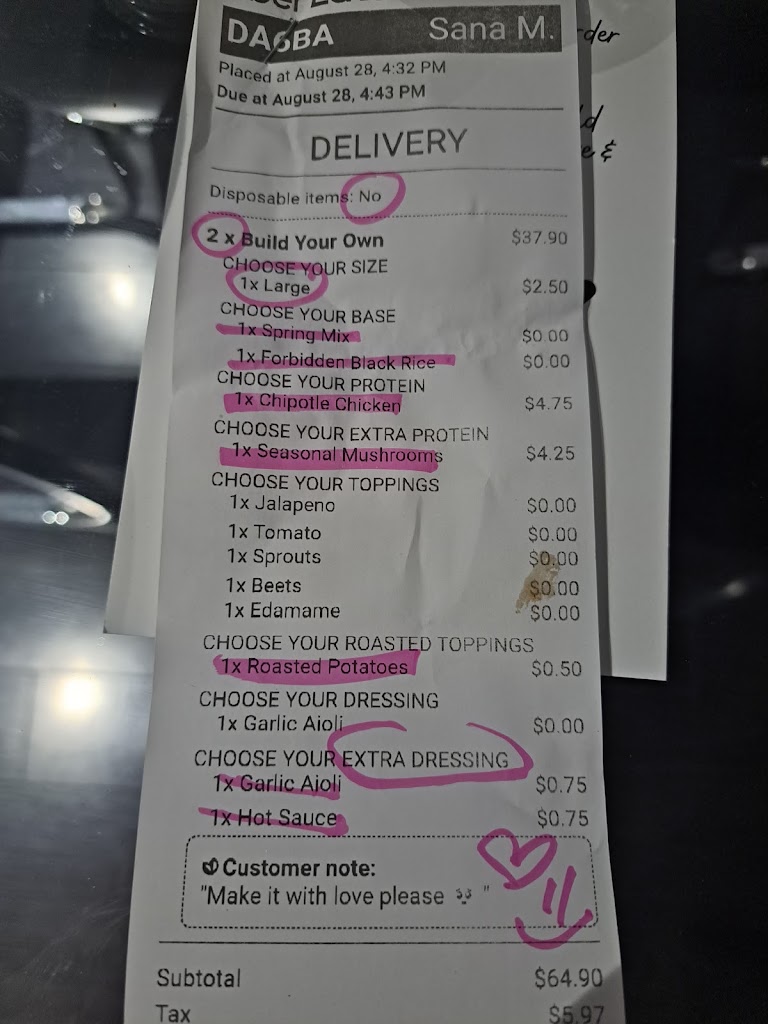 DA6BA Sana M.
Placed at August 28, 4:32 PM
Due at August 28, 4:43 PM
DELIVERY
Disposable items: No
2 x Build Your Own $37.90
CHOOSE YOUR SIZE
1x Large $2.50
CHOOSE YOUR BASE
1x Spring Mix $0.00
1x Forbidden Black Rice $0.00
CHOOSE YOUR PROTEIN
1x Chipotle Chicken $4.75
CHOOSE YOUR EXTRA PROTEIN
1x Seasonal Mushrooms $4.25
CHOOSE YOUR TOPPINGS
1x Jalapeno $0.00
1x Tomato $0.00
1x Sprouts $0.00
1x Beets $0.00
1x Edamame $0.00
CHOOSE YOUR ROASTED TOPPINGS
1x Roasted Potatoes $0.50
CHOOSE YOUR DRESSING
1x Garlic Aioli $0.00
CHOOSE YOUR EXTRA DRESSING
1x Garlic Aioli $0.75
1x Hot Sauce $0.75
Customer note:
"Make it with love please "
Subtotal $64.90
Tax $5.97